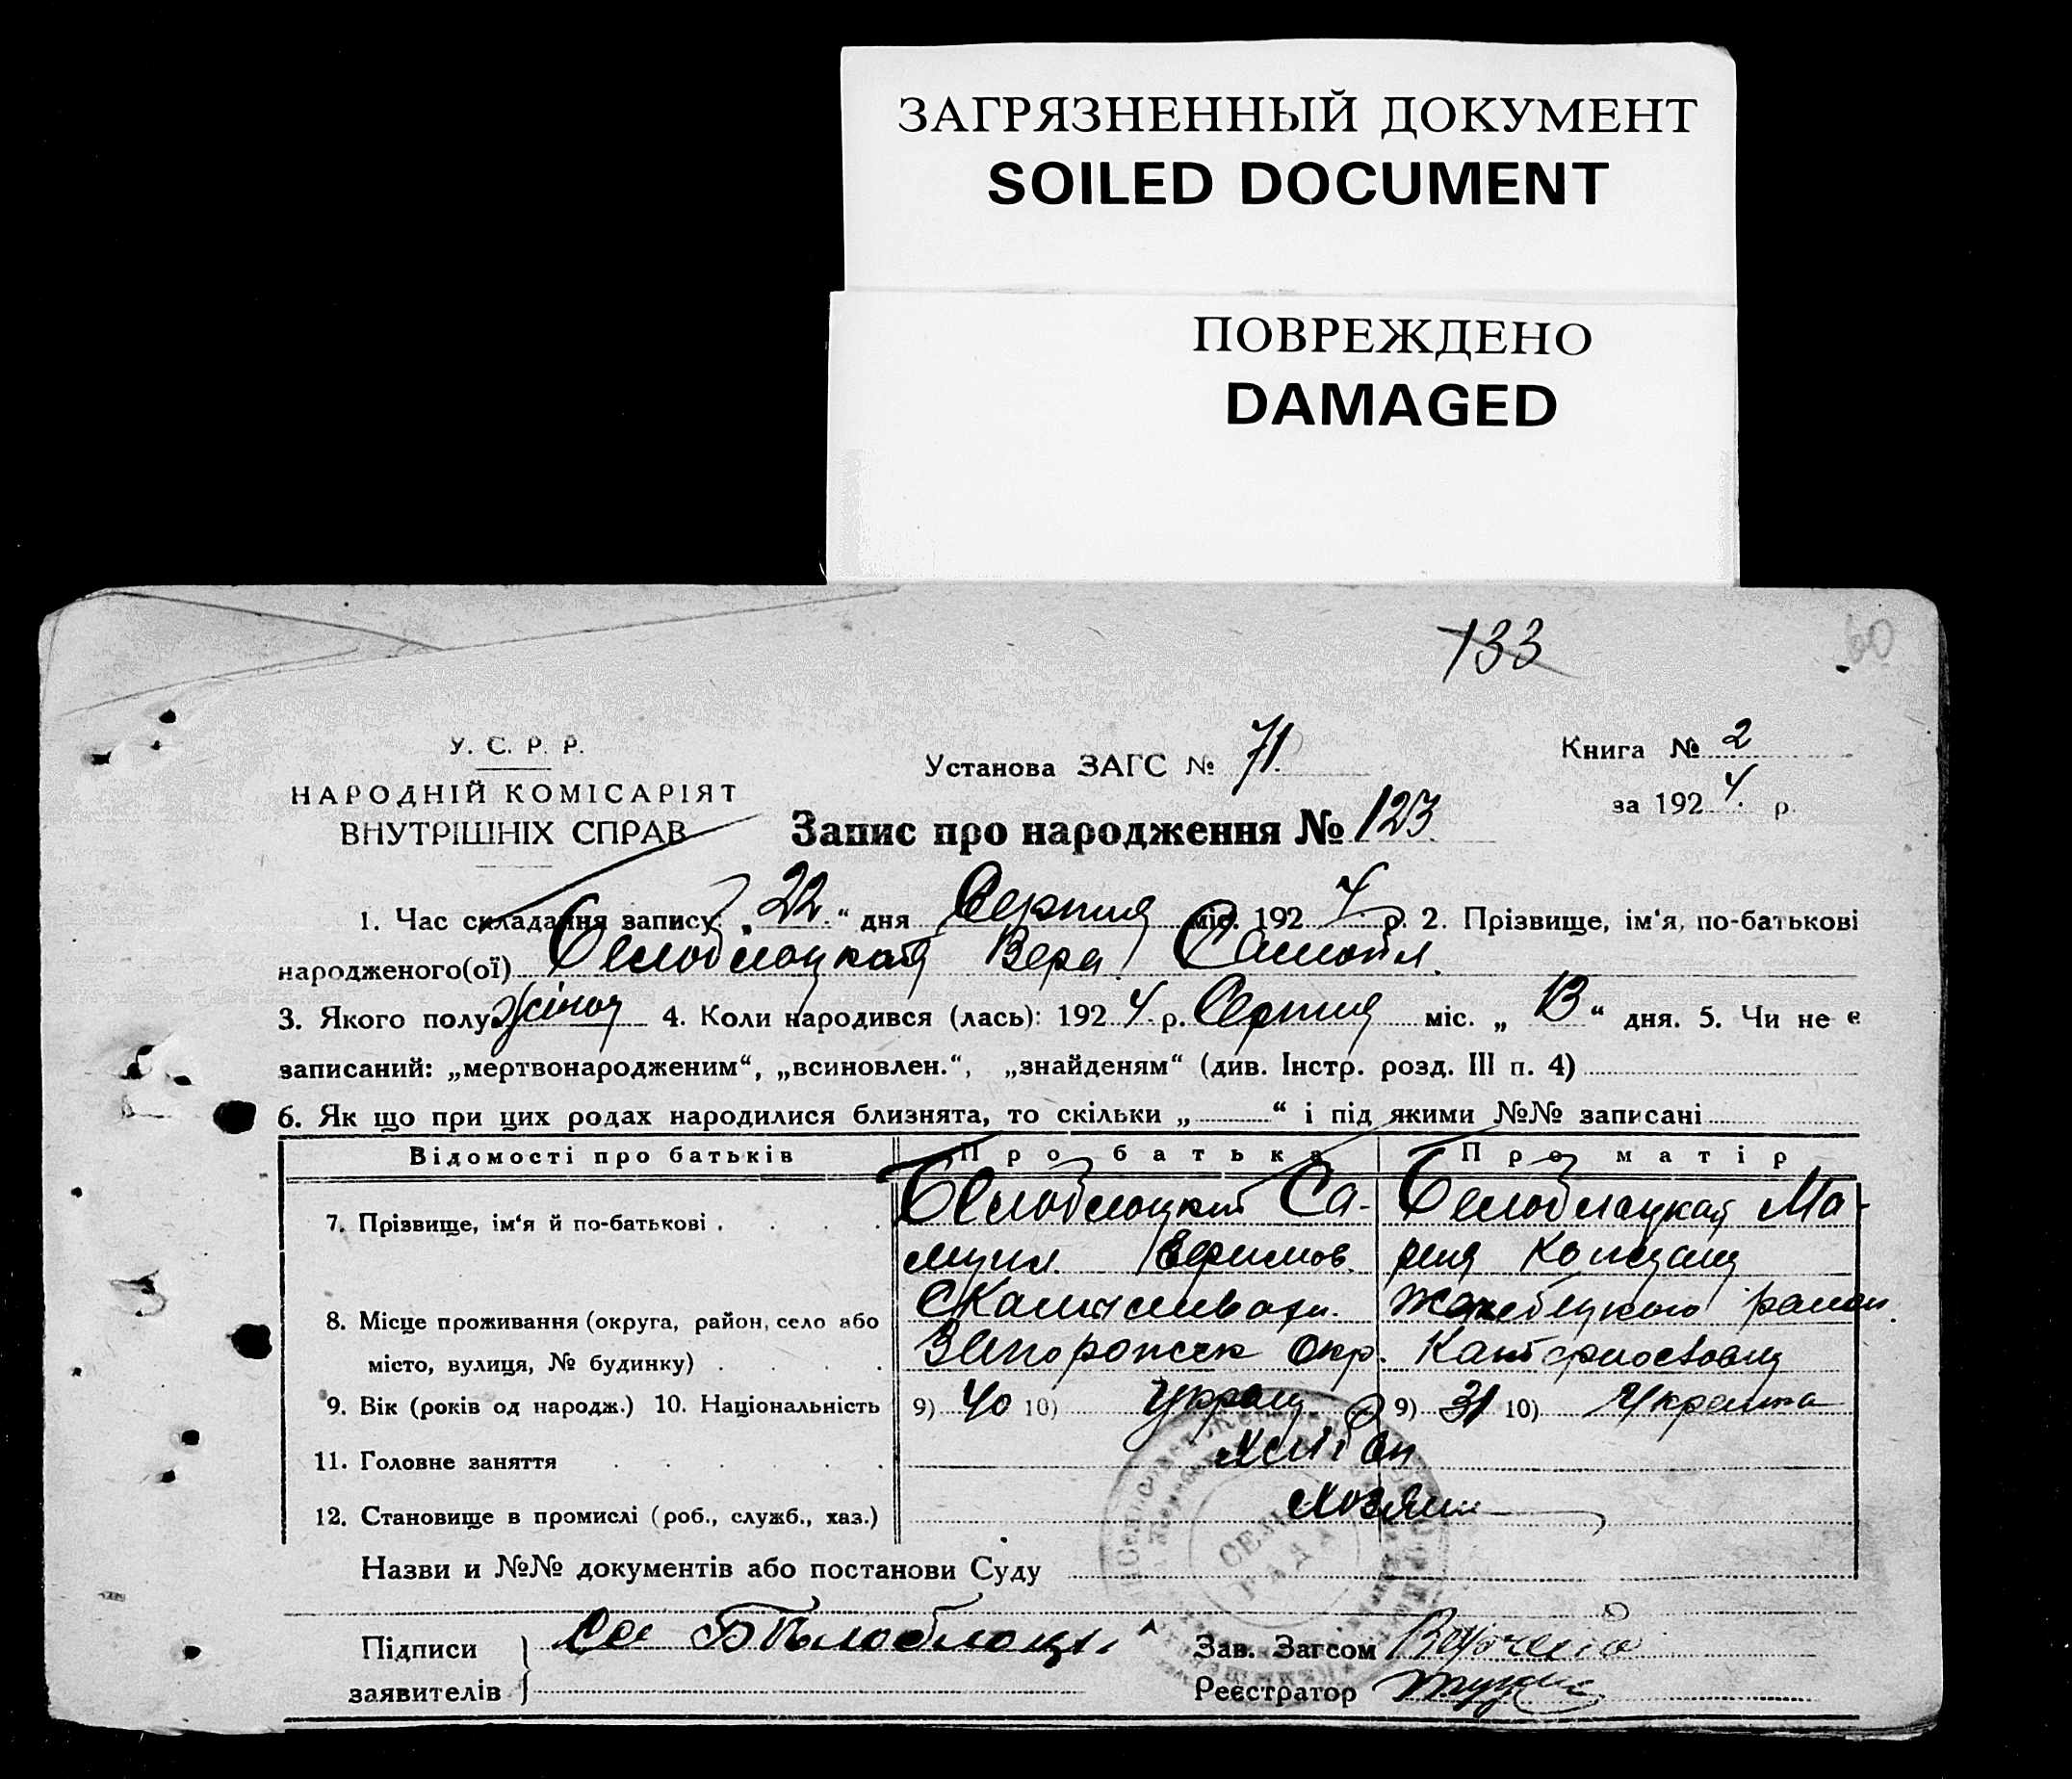 ЗАГРЯЗНЕННЫЙ ДОКУМЕНТ
SOILED DOCUMENT
ПОВРЕЖДЕНО
DAMAGED
133
60
У. С. Р. Р.
НАРОДНІЙ КОМІСАРІЯТ
ВНУТРІШНІХ СПРАВ
Установа ЗАГС № 71
Книга № 2
за 1924 р.
Запис про народження № 123
1. Час складання запису: „22“ дня Серпня міс. 1924 р. 2. Прізвище, ім‘я, по-батькові
народженого(ої) Белоблоцкая Вера Самойл.
3. Якого полу жіноч 4. Коли народився (лась): 1924 р. Серпня міс. „13“ дня. 5. Чи не є
записаний: „мертвонародженим“, „всиновлен.“, „знайденям“ (див. Інстр. розд. III п. 4)
6. Як що при цих родах народилися близнята, то скільки „ “ і під якими №№ записані
Відомості про батьків Про батька Про матір
7. Прізвище, ім‘я й по-батькові Белоблоцкий Са- Белоблацкая Ма-
рия
8. Місце проживання (округа, район, село або
місто, вулиця, № будинку) Запорожск Окр.
9. Вік (років од народж.) 10. Національність 9) 40 10) Украц 9) 31 10) Украинка
11. Головне заняття
12. Становище в промислі (роб., служб., хаз.) хозяин
СЕЛЬ
РАДА
Назви и №№ документів або постанови Суду
Підписи
заявителів
Зав. Загсом
Реєстратор